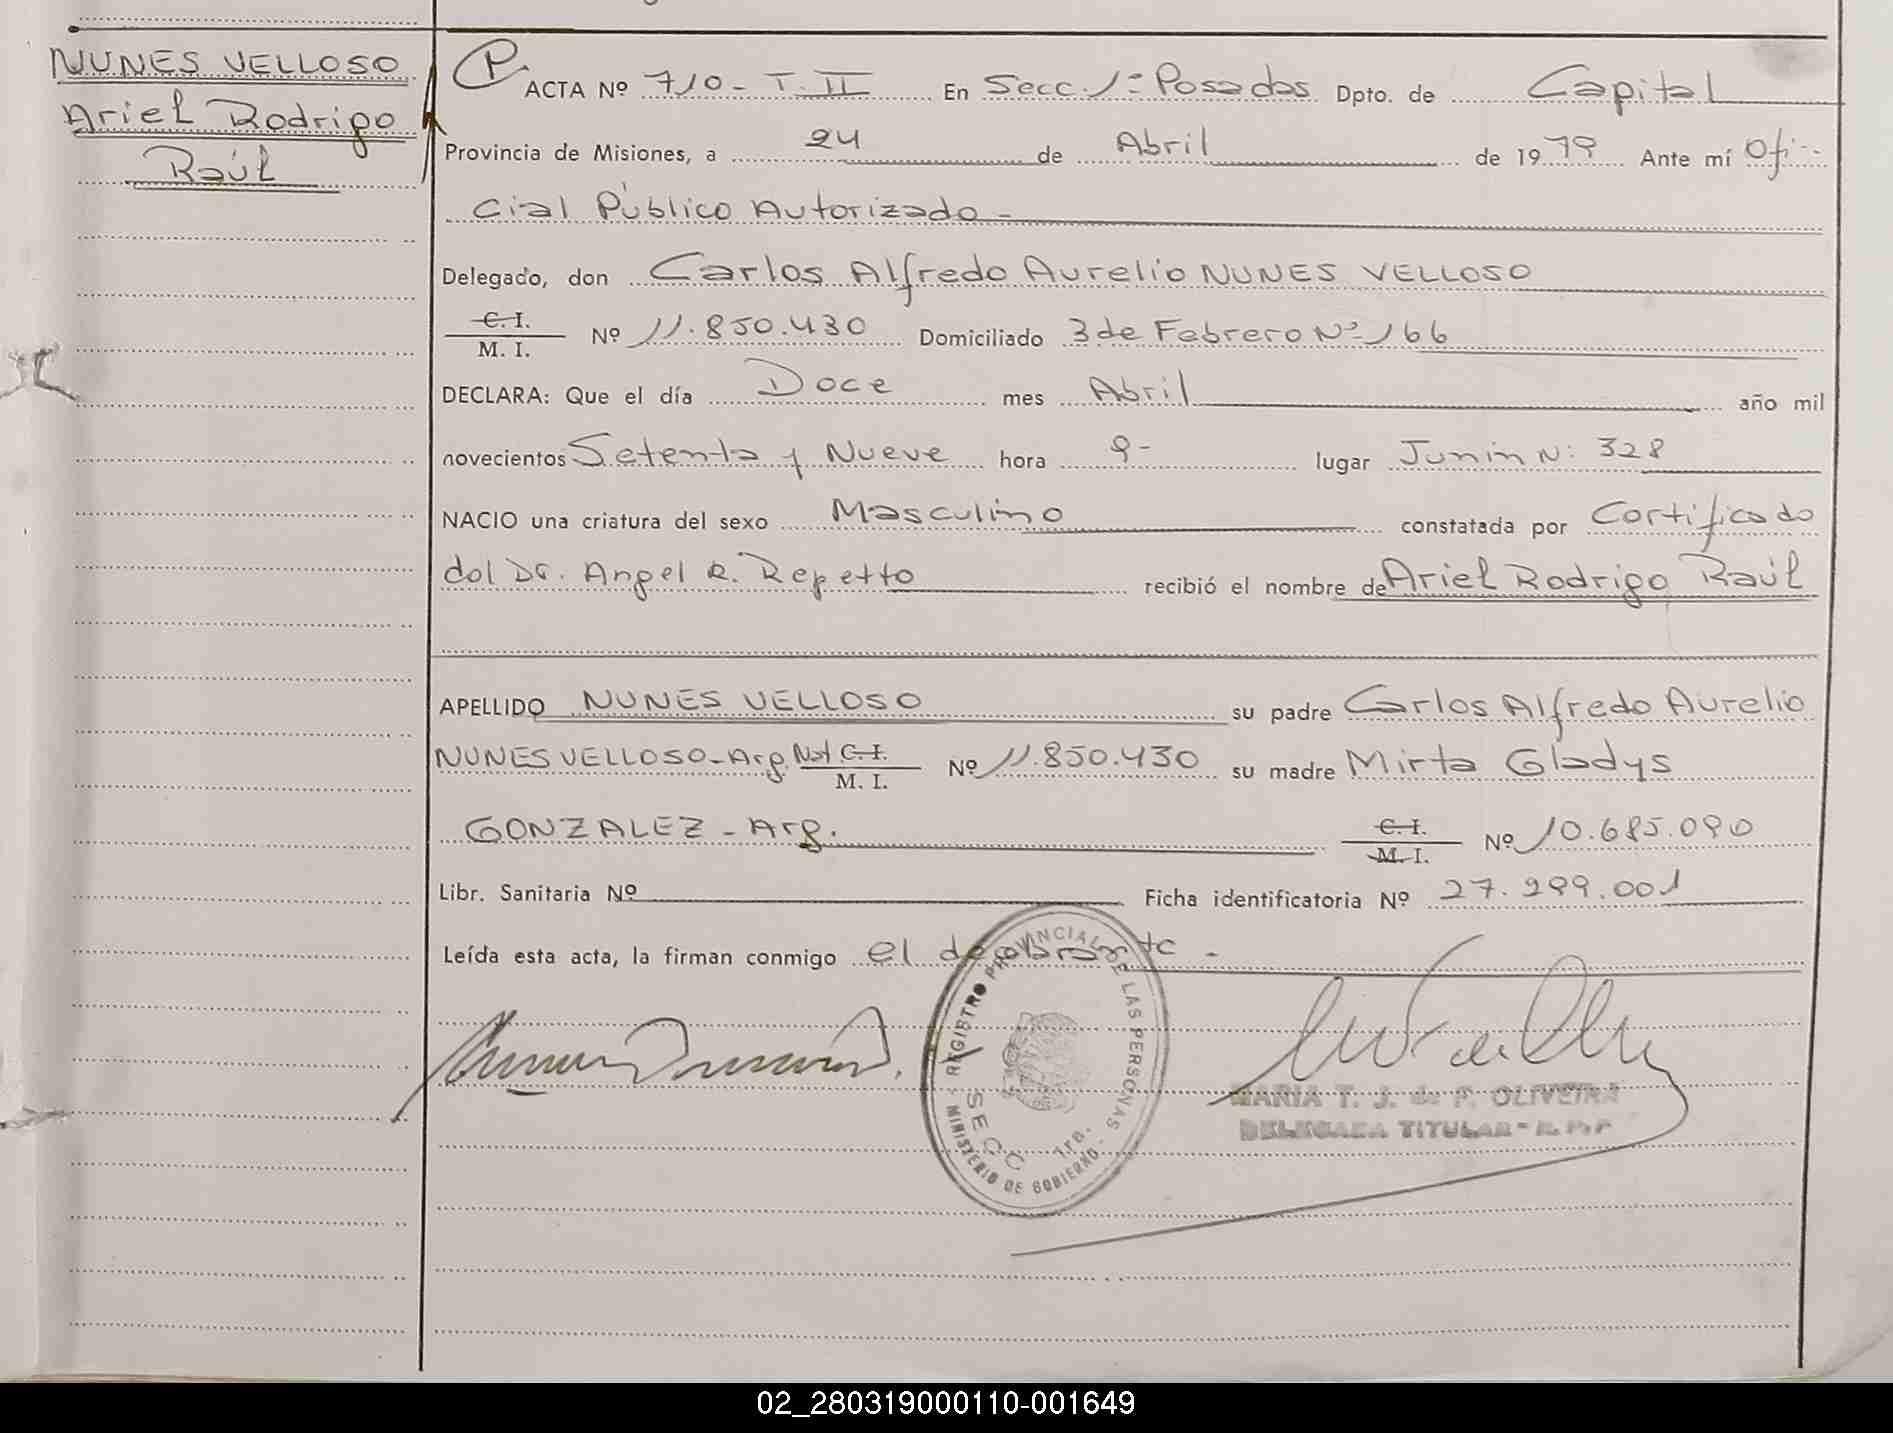 NUNES VELLOSO
Ariel Rodrigo
Raúl
P
ACTA Nº 710 - T. II En Secc. 1ª Posadas Dpto. de Capital
Provincia de Misiones, a 24 de Abril de 1979 Ante mí Ofi-
cial Público Autorizado -
Delegado, don Carlos Alfredo Aurelio NUNES VELLOSO
C. I.
M. I. Nº 11.850.430 Domiciliado 3 de Febrero Nº 166
DECLARA: Que el día Doce mes Abril año mil
novecientos Setenta y Nueve hora 9- lugar Junin Nº 328
NACIO una criatura del sexo Masculino constatada por Certificado
del Dr. Angel R. Repetto recibió el nombre de Ariel Rodrigo Raúl
APELLIDO NUNES VELLOSO su padre Carlos Alfredo Aurelio
NUNES VELLOSO - Arg. Nat C. I.
M. I. Nº 11.850.430 su madre Mirta Gladys
GONZALEZ - Arg. C. I.
M. I. Nº 10.685.090
Libr. Sanitaria Nº Ficha identificatoria Nº 27.299.001
Leída esta acta, la firman conmigo el declarante -
REGISTRO PROVINCIAL DE LAS PERSONAS
SECC 1ra.
MINISTERIO DE GOBIERNO
MARIA T. J. de F. OLIVEIRA
DELEGADA TITULAR - R. P. P.
02_280319000110-001649